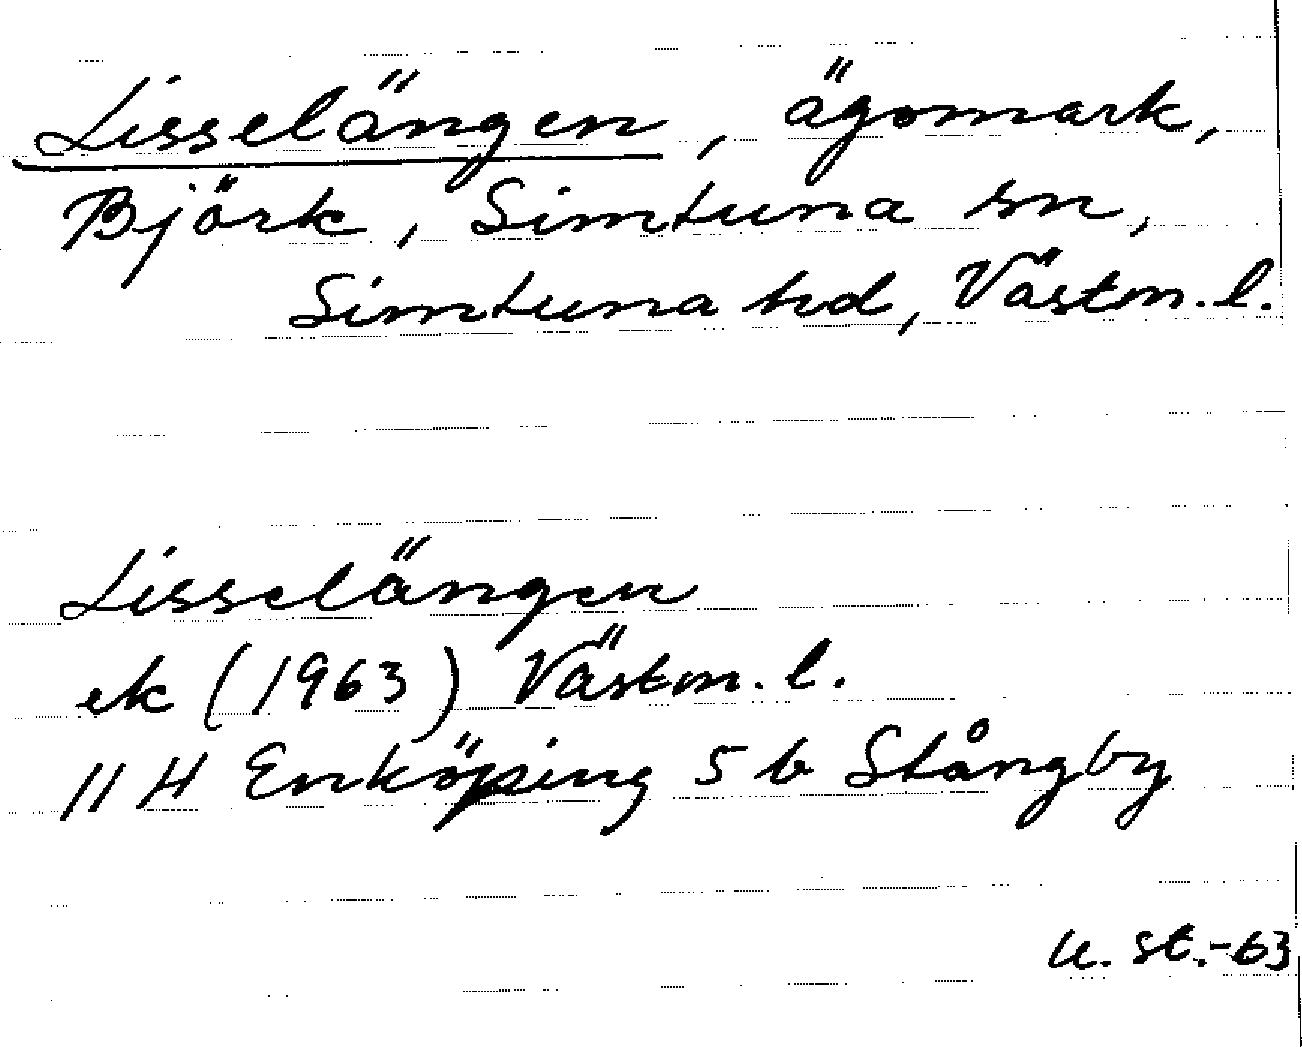 Lisselängen, ägomark,
Björk, Simtuna sn,
Simtuna hd, Västm. l.
Lisselängen
ek (1963) Västm. l.
11 H Enköping 5 b Stångby
U. st.-63